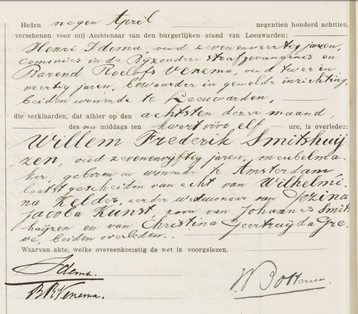 Heden negen April negentien honderd achttien,
verschenen voor mij Ambtenaar van den burgerlijken stand van Leeuwarden:
Henri Idema, oud zevenenveertig jaren,
commies in de Bijzondere Strafgevangenis en
Barend Roelofs Venema, oud twee en
veertig jaren, bewaarder in gemelde inrichting,
beiden wonende te Leeuwarden,
die verklaarden, dat alhier op den achtsten dezer maand
des na middags ten kwart voor elf ure, is overleden:
Willem Frederik Smitshuij
zen, oud zevenenvijftig jaren, meubelma
ker, geboren en wonende te Amsterdam,
laatst gescheiden van echt van Wilhelmi
na Kelder, eerder weduwnaar van Dozina
Jacoba Kunst, zoon van Johannes Smits
huijzen en van Christina Geertruijda Gre
ve, beiden overleden.
Waarvan akte, welke overeenkomstig de wet is voorgelezen.
Idema.
B.R. Venema.